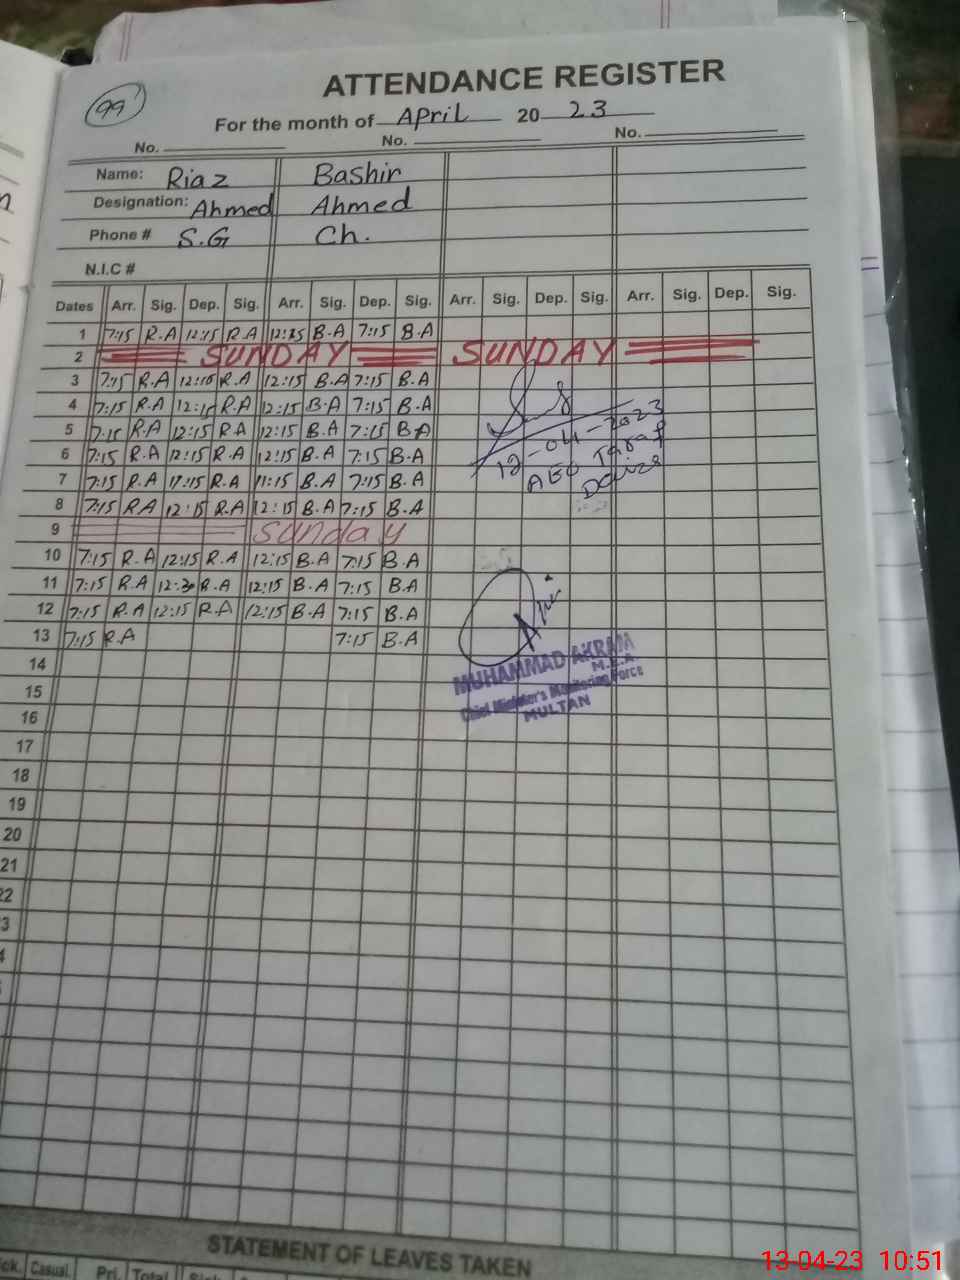 99
ATTENDANCE REGISTER
For the month of April 20 23
No. No. No.
Name: Riaz Bashir
Designation: Ahmed Ahmed
Phone # S.G Ch.
N.I.C #
Dates Arr. Sig. Dep. Sig. Arr. Sig. Dep. Sig. Arr. Sig. Dep. Sig. Arr. Sig. Dep. Sig.
1 7:15 R.A 12:15 R.A 12:15 B.A 7:15 B.A
2 SUNDAY SUNDAY
3 7:15 R.A 12:10 R.A 12:15 B.A 7:15 B.A
4 7:15 R.A 12:15 R.A 12:15 B.A 7:15 B.A
5 7:15 R.A 12:15 R.A 12:15 B.A 7:15 B.A
6 7:15 R.A 12:15 R.A 12:15 B.A 7:15 B.A
7 7:15 R.A 11:15 R.A 11:15 B.A 7:15 B.A
8 7:15 R.A 12:15 R.A 12:15 B.A 7:15 B.A
12-04-2023
AEO Taraf
9 Sunday
10 7:15 R.A 12:15 R.A 12:15 B.A 7:15 B.A
11 7:15 R.A 12:30 R.A 12:15 B.A 7:15 B.A
12 7:15 R.A 12:15 R.A 12:15 B.A 7:15 B.A
13 7:15 R.A 7:15 B.A
MUHAMMAD AKRAM
M.E.A
Chief Minister's Monitoring Force
MULTAN
14
15
16
17
18
19
20
21
22
3
4
STATEMENT OF LEAVES TAKEN
ick. Casual. Pri. Total Sick
13-04-23 10:51